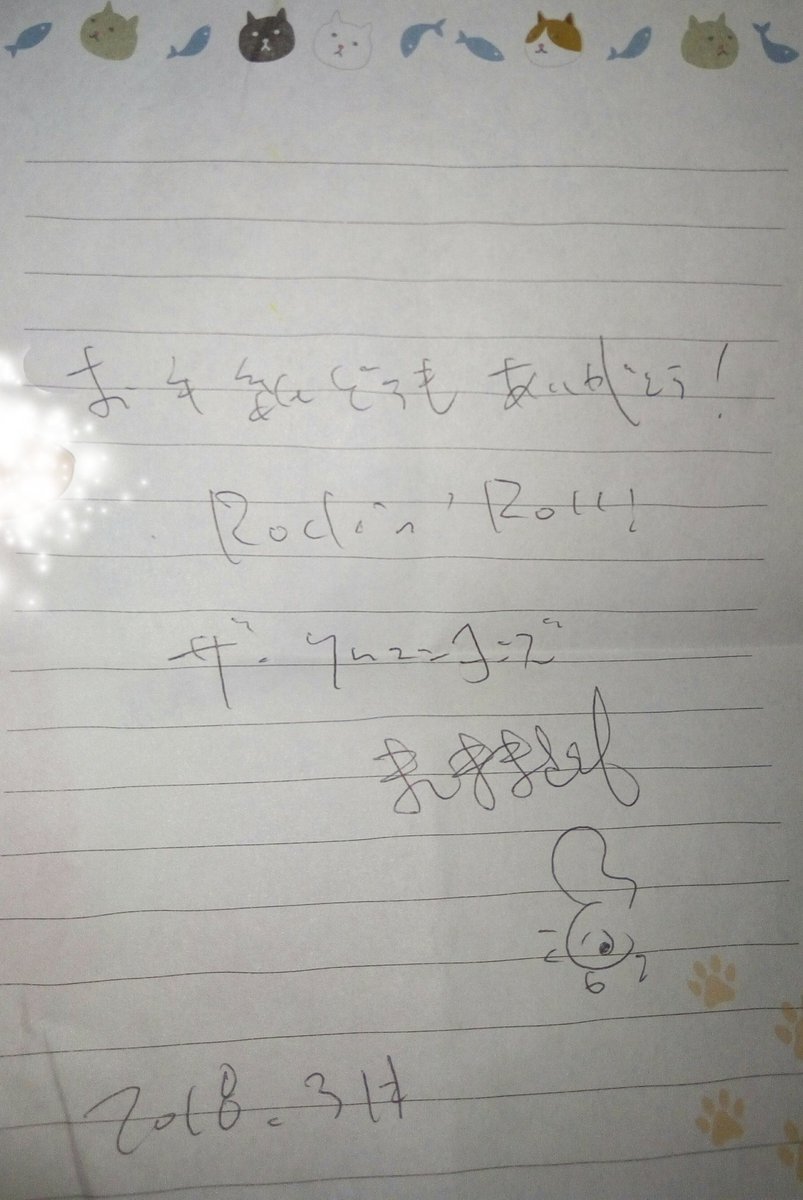 お手紙どうも ありがとう!
Rockin' Roll!
ザ・クロマニヨンズ
2018. 3